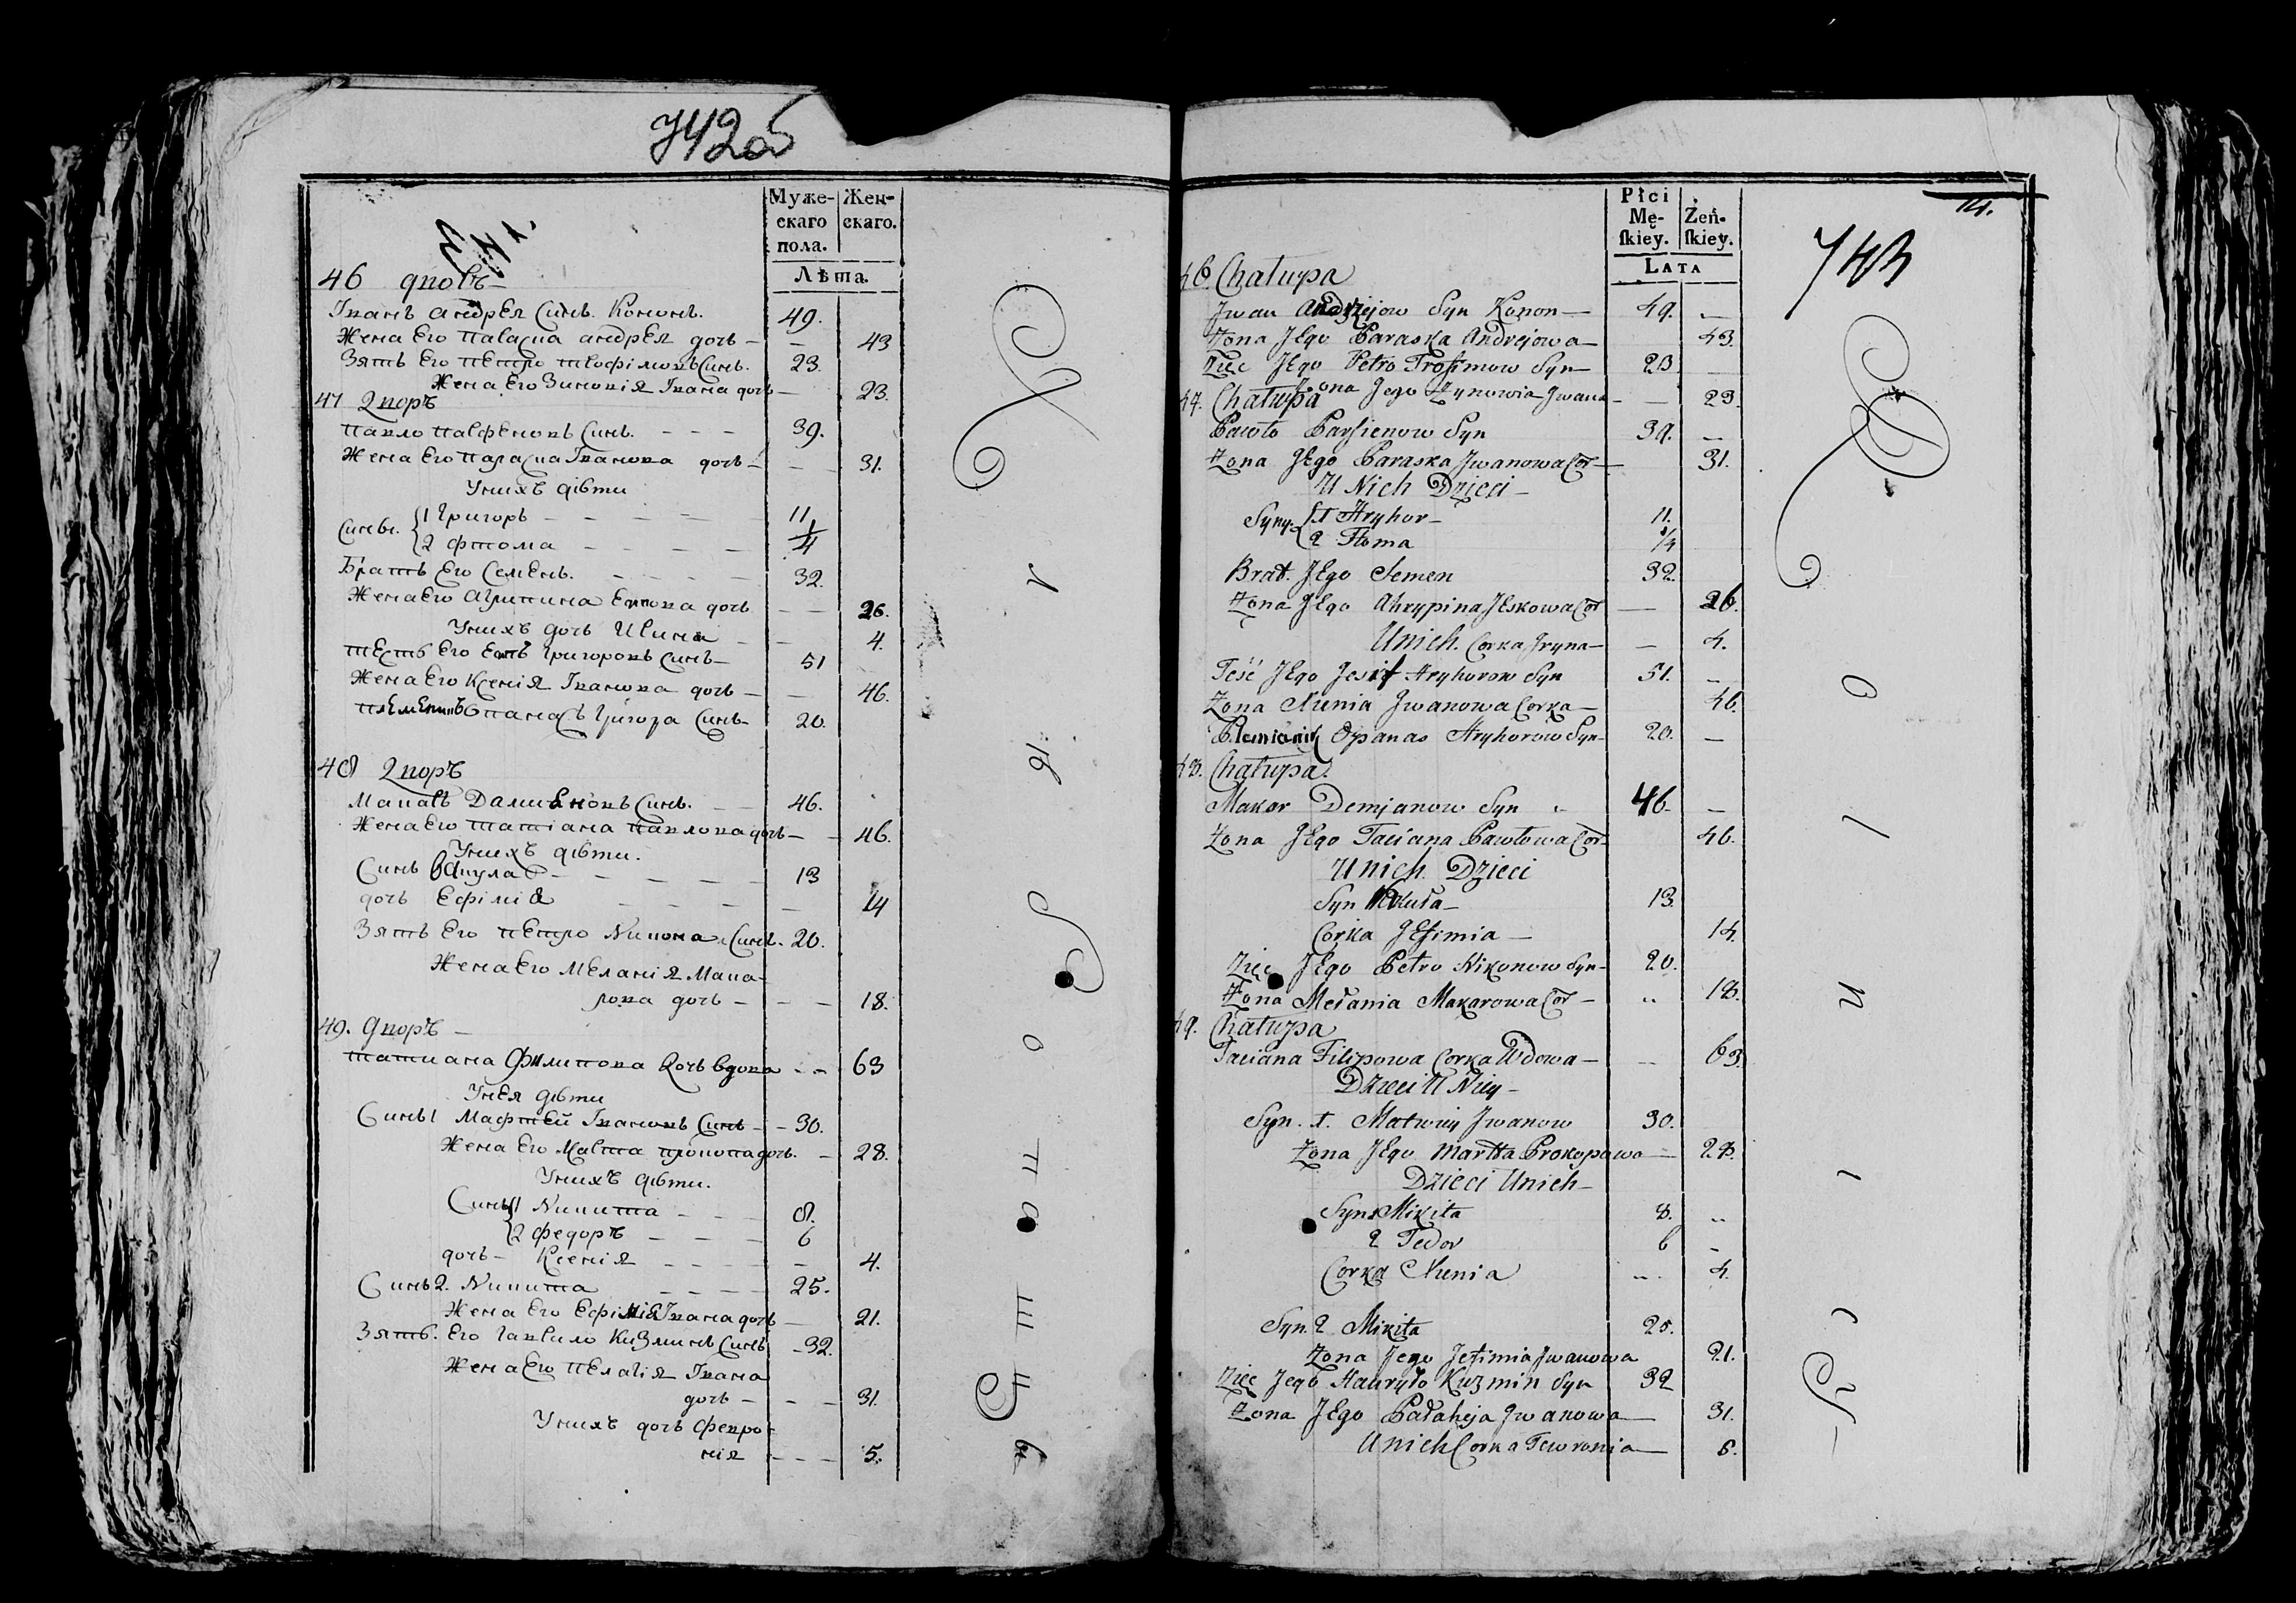 742об
Муже-
скаго
пола.
Жен-
скаго.
Лѣта.
46 дворъ
Іванъ андрея Синъ. Кононъ. 49.
Жена Его параска андрея дочь — 43
Зять Его петро трофімовъ Синъ. 23.
Жена Его Зиновія Івана дочь — 23.
47 Дворъ
павло парфеновъ Синъ. 39.
Жена Его параска Іванова дочь — 31.
Унихъ дѣти
Сини. 1 Григоръ 11
2 фтома 1/4
Братъ Его Семенъ. 32.
Жена Его агрипина Ескова дочь 26.
Унихъ дочь Ирина 4.
тесть Его Григоровъ Синъ 51
Жена Его Ксенія Іванова дочь — 46.
Опанасъ Григора Синъ 20.
48 Дворъ
Макаръ Дамияновъ Синъ. 46.
Жена Его татіана павлова дочь — 46.
Унихъ дѣти.
Синъ Вакула 13
дочь Ефімія 14
Зять Его петро Никона Синъ. 20.
Жена Его Меланія Мака-
рова дочь — 18.
49. дворъ —
татиана Филипова Дочь вдова 63
Унея дѣти
Синъ 1 Мафтей Івановъ Синъ 30.
Жена Его Марта прокопа дочь. 28.
Унихъ дѣти.
Синъ 1 Никита 8.
2 федоръ 6
дочь — Ксенія 4.
Синъ 2. Никита 25.
Жена Его Ефімія Івана дочь 21.
Зять. Его Гаврило Кузминъ Синъ 32.
Жена Его пелагія Івана
дочь — 31.
Унихъ дочь февро
нія 5.
Płci
Mę-
skiey.
Żeń-
skiey.
LATA
14.
743
46. Chałupa
Jwan Andrzejow Syn Konon — 49. —
Żona JEgo Paraska Andrejowa — 43.
Zięc JEgo Petro Trofimow Syn — 23
Żona Jego Zynowia Jwana — 23.
47. Chałupa
Pawło Parfienow Syn 39. —
Żona JEgo Paraska Jwanowa Cor — 31.
U Nich Dzieci —
Syny. 1 Hryhor — 11.
2 Ftoma 1/4
Brat. JEgo Semen 32.
Żona JEgo Ahrypina JEskowa Cor — 26.
Unich. Corka Jryna — 4.
Teść JEgo Hryhorow Syn 51. —
Żona Xenia Jwanowa Corka — 46.
Plemianik Opanas Hryhorow Syn — 20. —
48. Chałupa.
Makar Demjanow Syn 46. —
Żona JEgo Taciana Pawłowa Cor — 46.
Unich Dzieci
Syn Wakuła — 13.
Corka JEfimia — 14.
Zięc JEgo Petro Nikonow Syn — 20.
Żona Mełania Makarowa Cor — 18.
49. Chałupa
Taciana Filipowa Corka Wdowa — 63.
Dzieci U Niey —
Syn. 1. Matwiy Jwanow 30.
Żona JEgo Marta Prokopowa — 28.
Dzieci Unich —
Syn 1 Mikita 8.
2 Fedor 6
Corka Xenia 4.
Syn. 2 Mikita 25.
Żona Jego Jefimia Jwanowa 21.
Zięc Jego Hawryło Kuzmin Syn 32
Żona JEgo Pałaheja Jwanowa — 31.
Unich Corka Fewronia — 5.